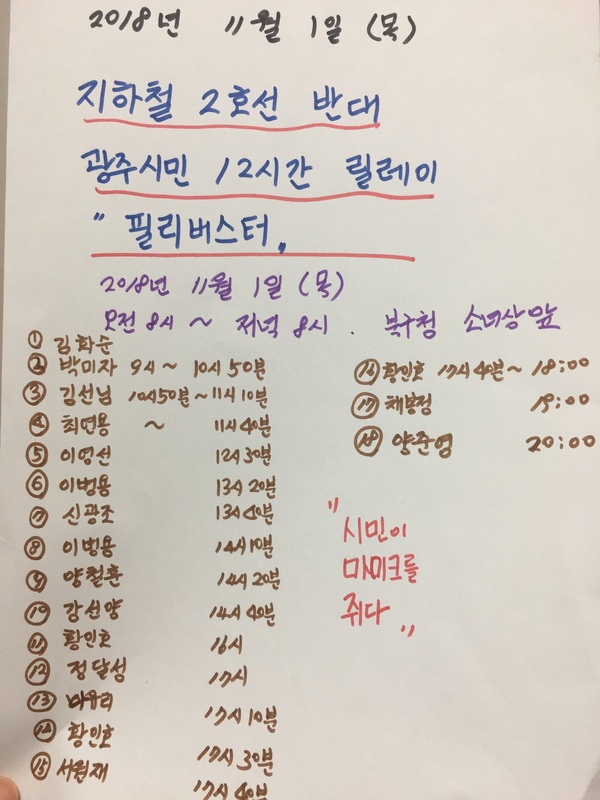 2018년 11월 1일 (목)
지하철 2호선 반대
광주시민 12시간 릴레이
" 필리버스터 "
2018년 11월 1일 (목)
오전 8시 ~ 저녁 8시. 북구청 소녀상 앞
① 김화순
② 박미자 9시 ~ 10시 50분
③ 김선님 10시50분~11시 10분
④ 최연용 ~ 11시 40분
⑤ 이영선 12시 30분
⑥ 이병용 13시 20분
⑦ 신광조 13시 40분
⑧ 이병용 14시 10분
⑨ 양철훈 14시 20분
⑩ 강선양 14시 40분
⑪ 황인호 16시
⑫ 정달성 17시
⑬ 17시 10분
⑭ 황인호 17시 30분
⑮ 서림재 17시 40분
⑯ 황인호 17시 40분~ 18:00
⑰ 채봉정 19:00
⑱ 양준영 20:00
" 시민이
마이크를
쥐다 "